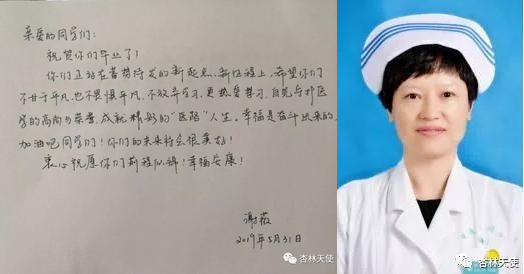 亲爱的同学们:
祝贺你们毕业了!
你们正站在蓄势待发的新起点、新征程上,希望你们
不甘于平凡,也不畏惧平凡,不放弃学习,更热爱
学的高尚与荣耀,成就精妙的“医路”人生。幸福是奋斗出来的,
加油吧同学们!你们的未来将会很美好!
衷心祝愿你们前程似锦!幸福安康!
谢薇
2019年5月31日
杏林天使
杏林天使